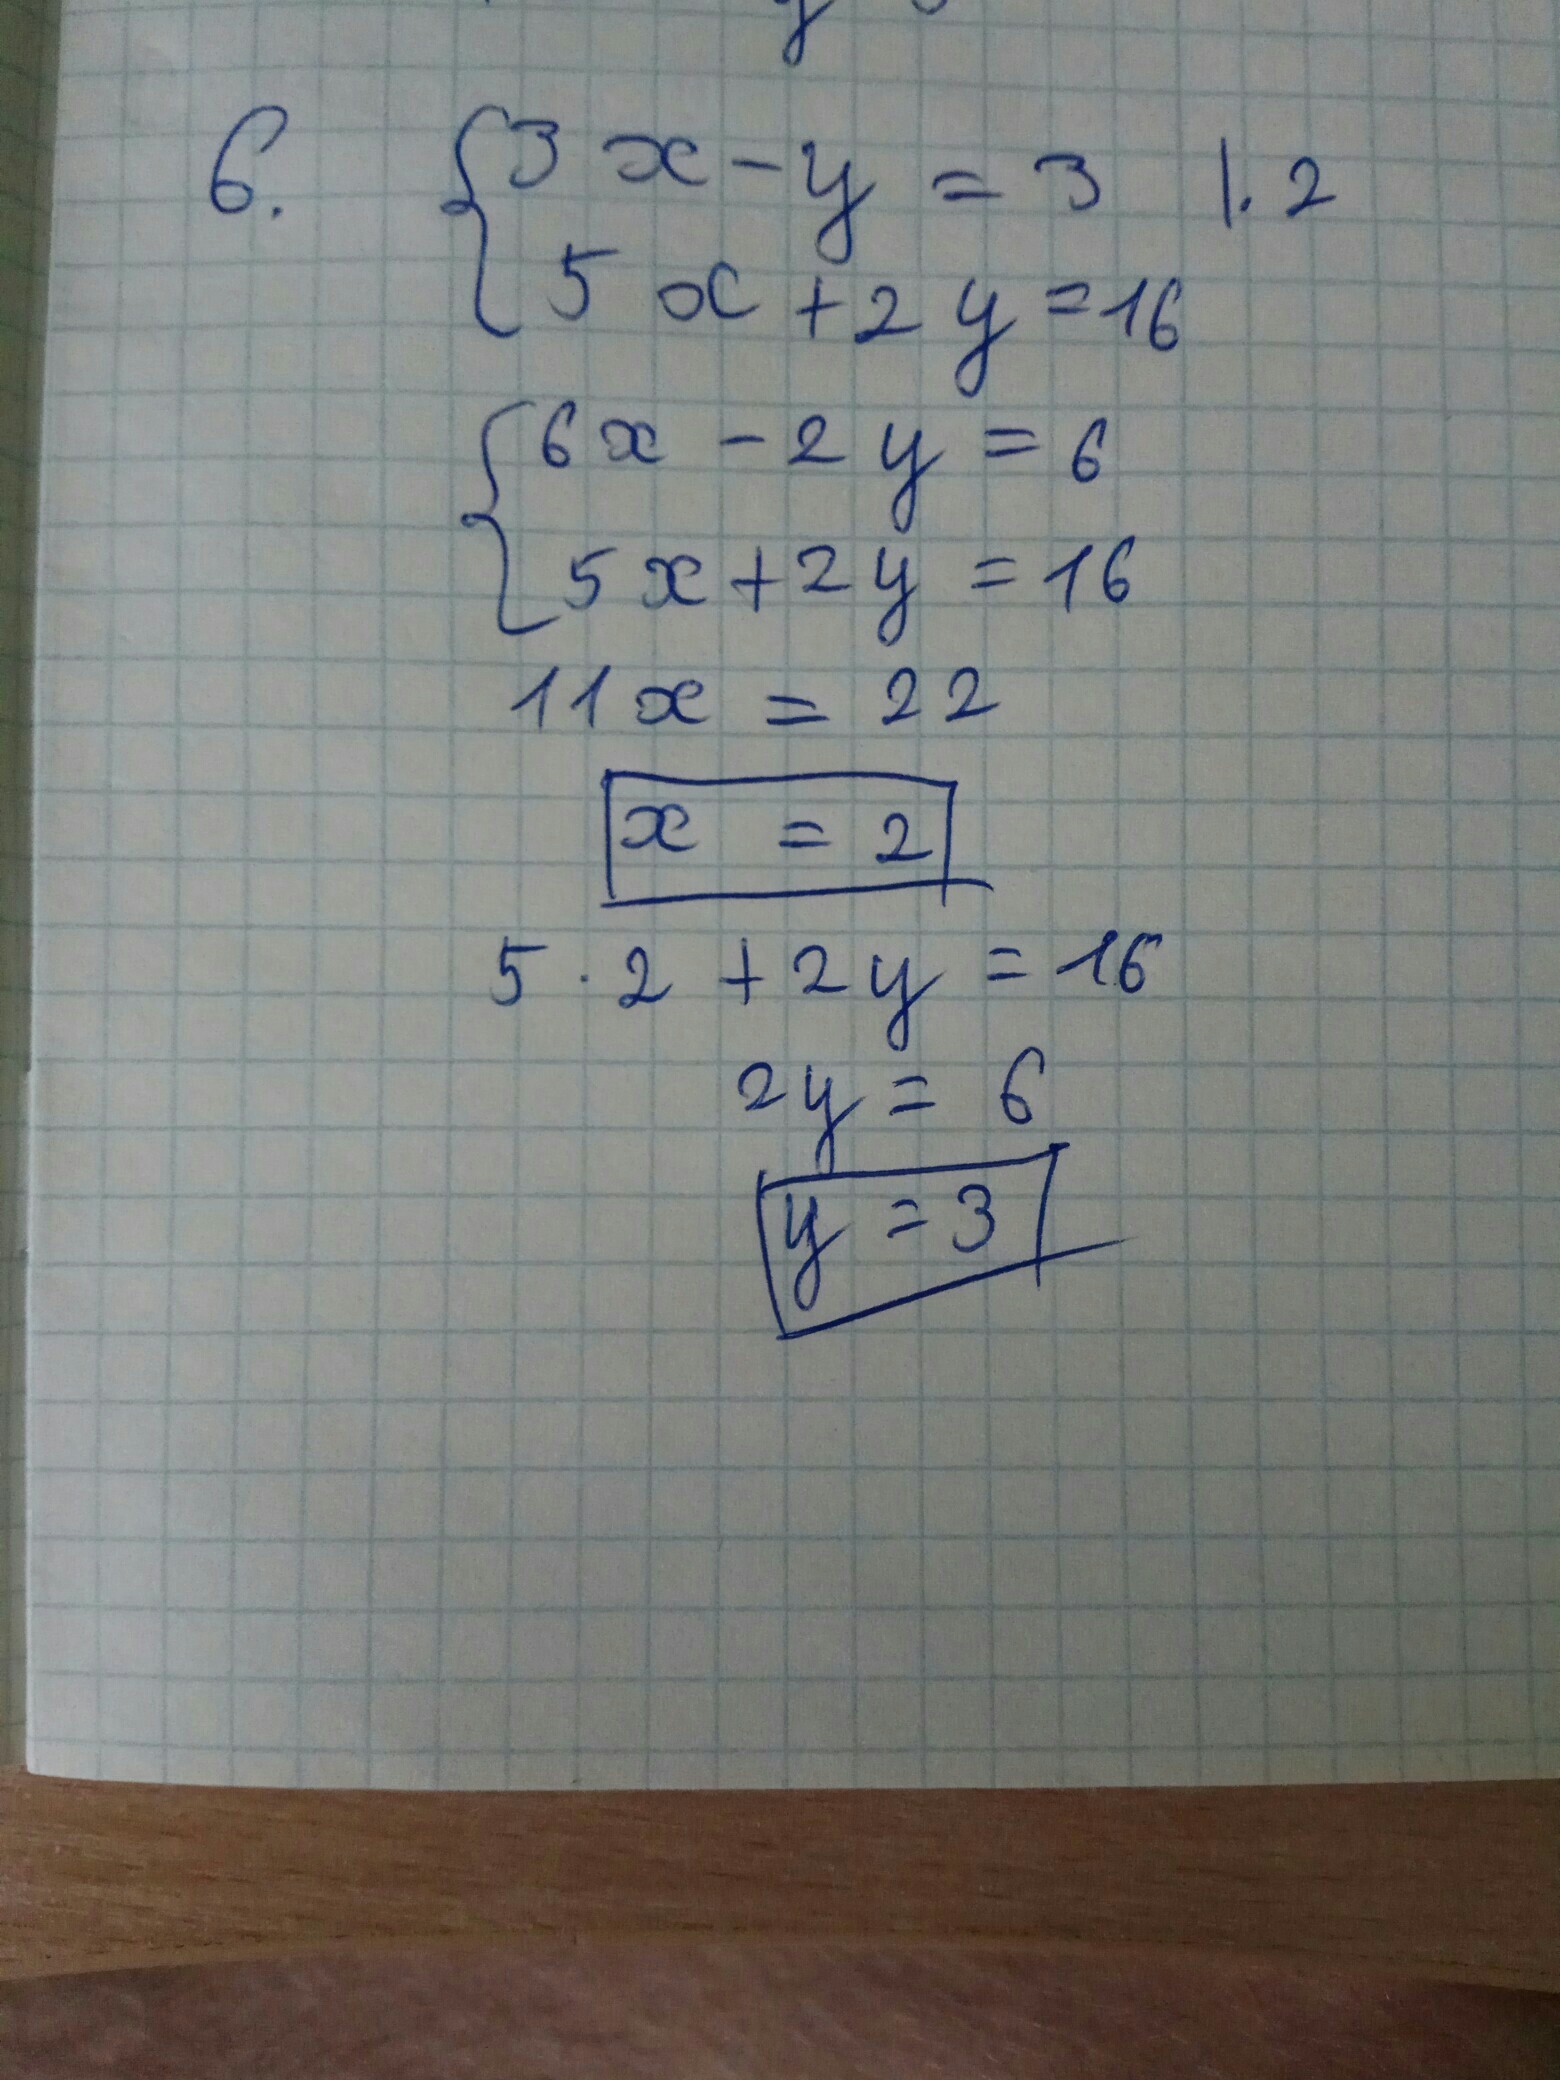 6. { 3x - y = 3 | · 2
5x + 2y = 16
{ 6x - 2y = 6
5x + 2y = 16
11x = 22
x = 2
5 · 2 + 2y = 16
2y = 6
y = 3